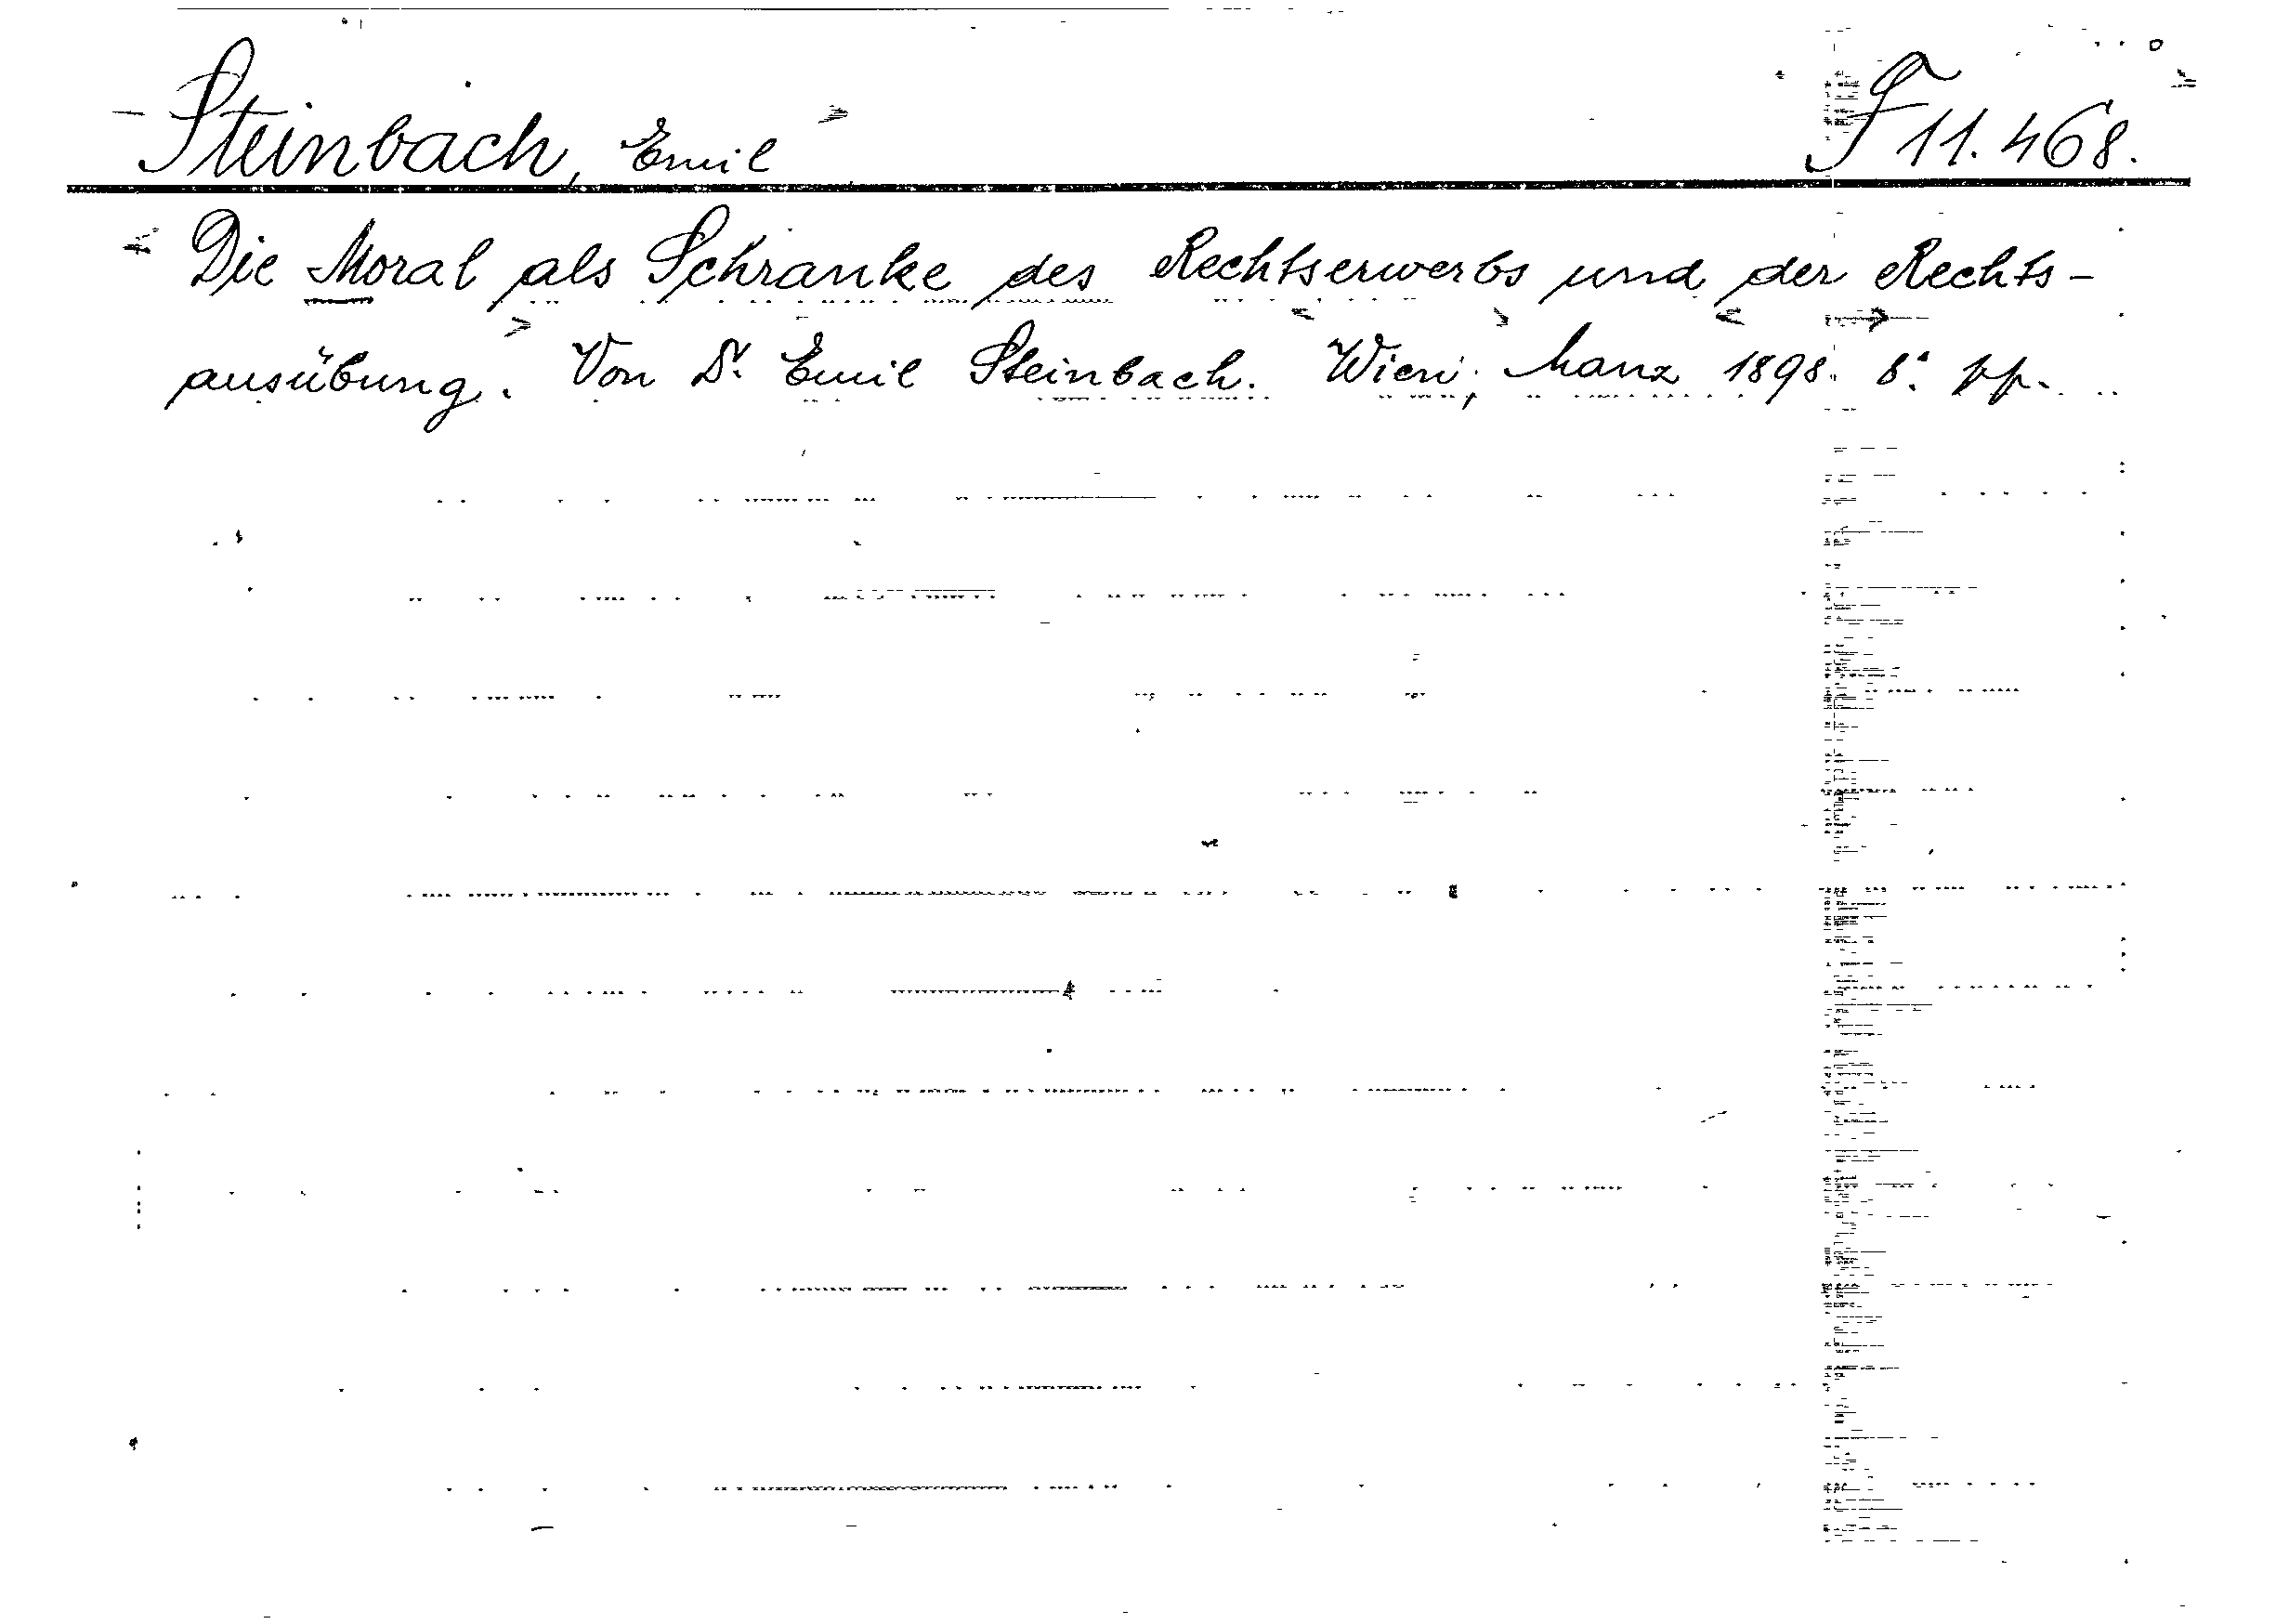 Steinbach, Emil F 11.468.
Die Moral als Schranke des Rechtserwerbs und der Rechts-
ausübung. Von Dr. Emil Steinbach. Wien, Manz 1898. 8° pp.